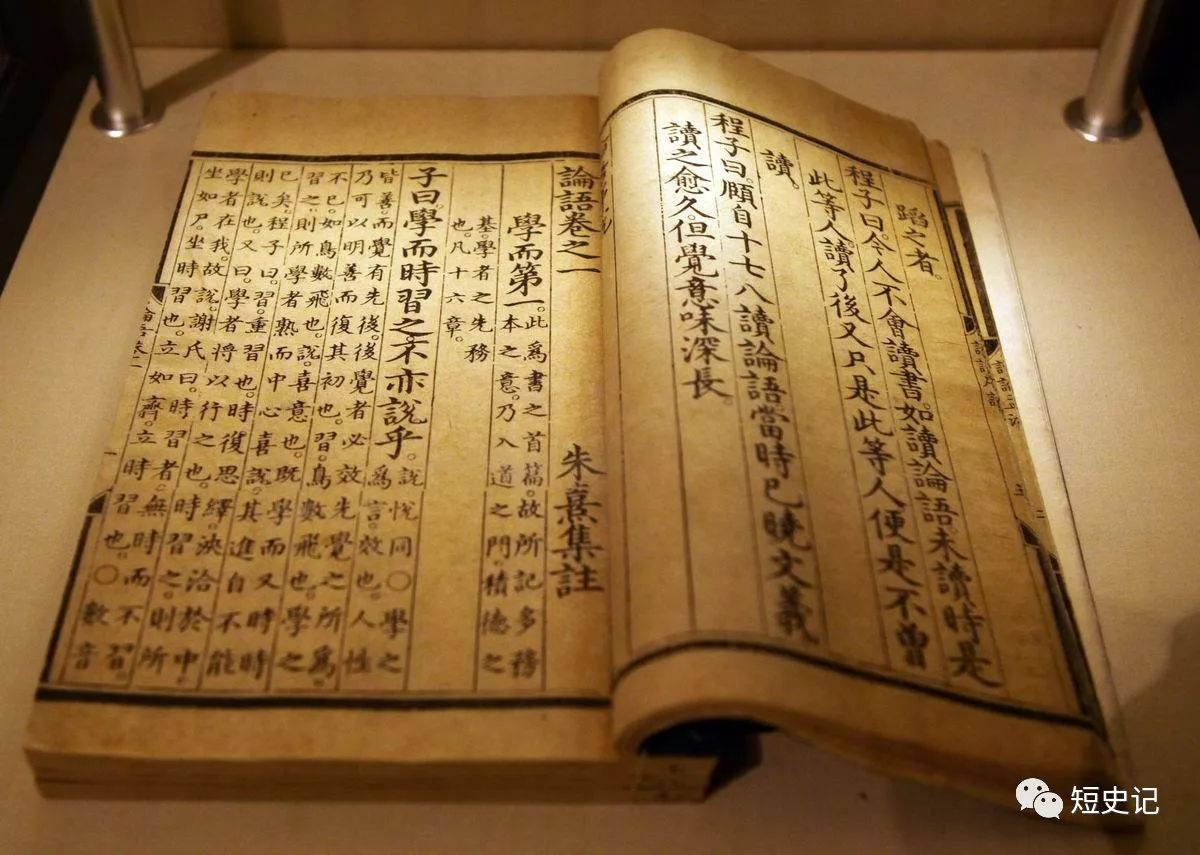 蹈之者。
程子曰。今人不會讀書。如讀論語。未讀時是
此等人。讀了後又只是此等人。便是不曾
讀。
程子曰。頤自十七八讀論語。當時已曉文義
讀之愈久。但覺意味深長
論語卷之一 朱熹集註
學而第一。此爲書之首篇。故所記多務
本之意。乃入道之門。積德之
基。學者之先務
也。凡十六章。
子曰。學而時習之。不亦說乎。說悅同○學之
爲言效也。人性
皆善。而覺有先後。後覺者必效先覺之所爲。
乃可以明善而復其初也。習。鳥數飛也。學之
不已。如鳥數飛也。說。喜意也。既學而又時時
習之。則所學者熟而中心喜說。其進自不能
已矣。程子曰。習。重習也。時復思繹。浹洽於中。
則說也。又曰。學者將以行之也。時習之。則所
學者在我。故說。謝氏曰。時習者。無時而不習。
坐如尸。坐時習也。立如齊。立時習也。○數音
一
短史记